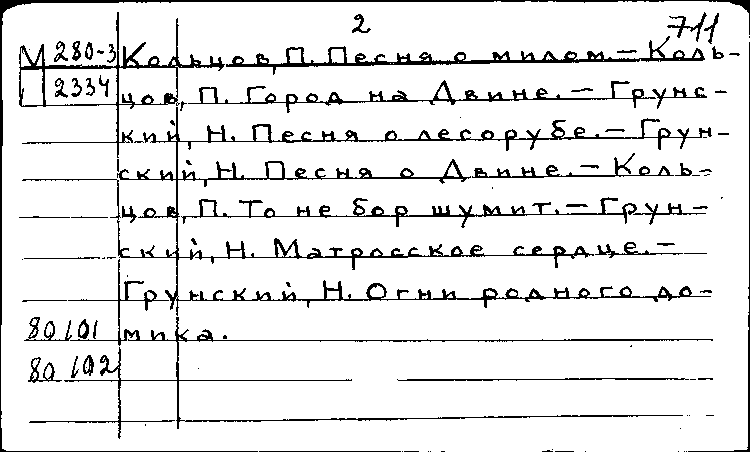 2 711
М 280-3 Кольцов, П. Песня о милом.— Коль-
2334 цов, П. Город на Двине.— Грунс-
кий, Н. Песня о лесорубе.— Грун-
ский, Н. Песня о Двине.— Коль-
цов, П. То не бор шумит.— Грун-
ский, Н. Матросское сердце.—
Грунский, Н. Огни родного до-
80101 мика.
80102